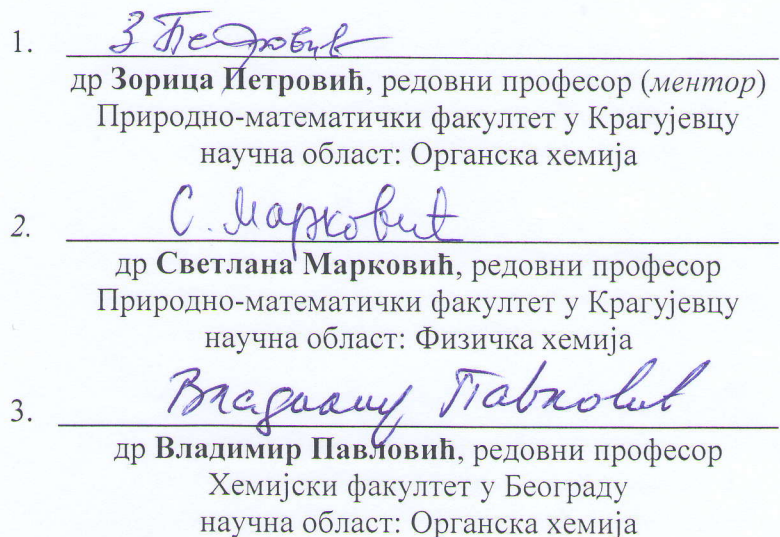 1. З Петровић
др Зорица Петровић, редовни професор (ментор)
Природно-математички факултет у Крагујевцу
научна област: Органска хемија
2. С. Марковић
др Светлана Марковић, редовни професор
Природно-математички факултет у Крагујевцу
научна област: Физичка хемија
3. Владимир Павловић
др Владимир Павловић, редовни професор
Хемијски факултет у Београду
научна област: Органска хемија